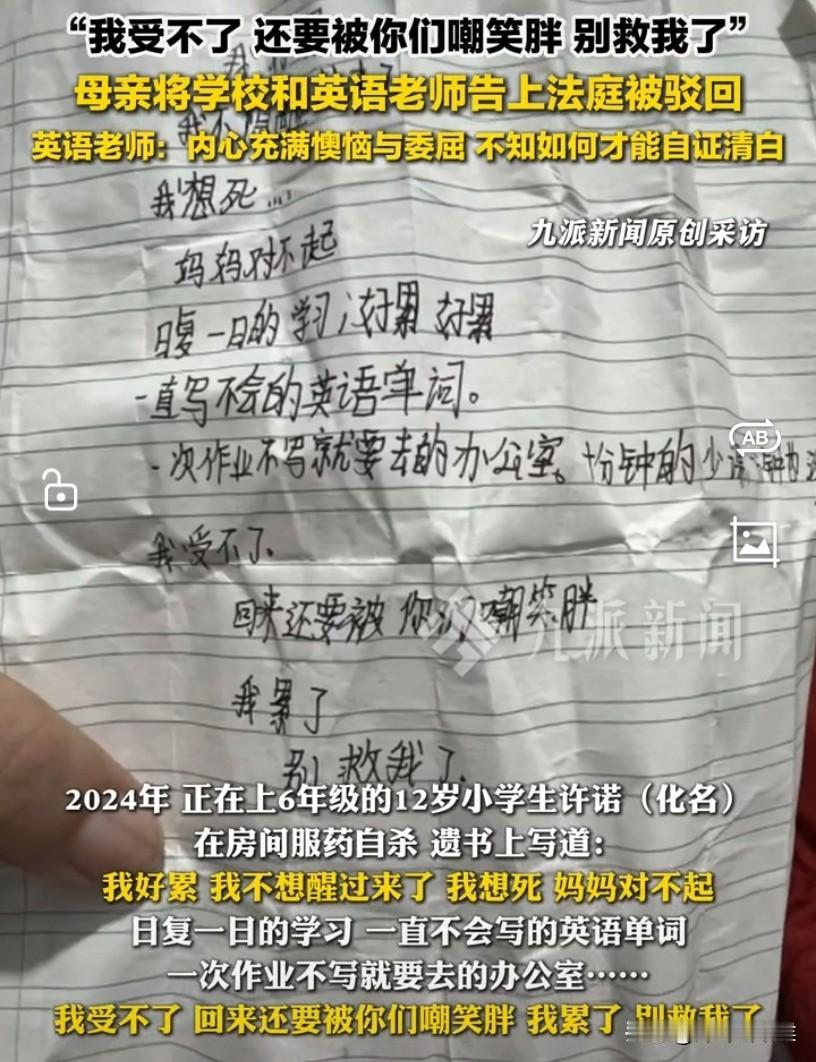 “我受不了 还要被你们嘲笑胖 别救我了”
母亲将学校和英语老师告上法庭被驳回
英语老师：内心充满懊恼与委屈 不知如何才能自证清白
我想死...
九派新闻原创采访
妈妈对不起
日复一日的学习，好累 好累
一直写不会的英语单词。
AB
一次作业不写就要去的办公室。十分钟的
我受不了
回来还要被你们嘲笑胖
九派新闻
我累了
别救我了
2024年 正在上6年级的12岁小学生许诺（化名）
在房间服药自杀 遗书上写道：
我好累 我不想醒过来了 我想死 妈妈对不起
日复一日的学习 一直不会写的英语单词
一次作业不写就要去的办公室……
我受不了 回来还要被你们嘲笑胖 我累了 别救我了